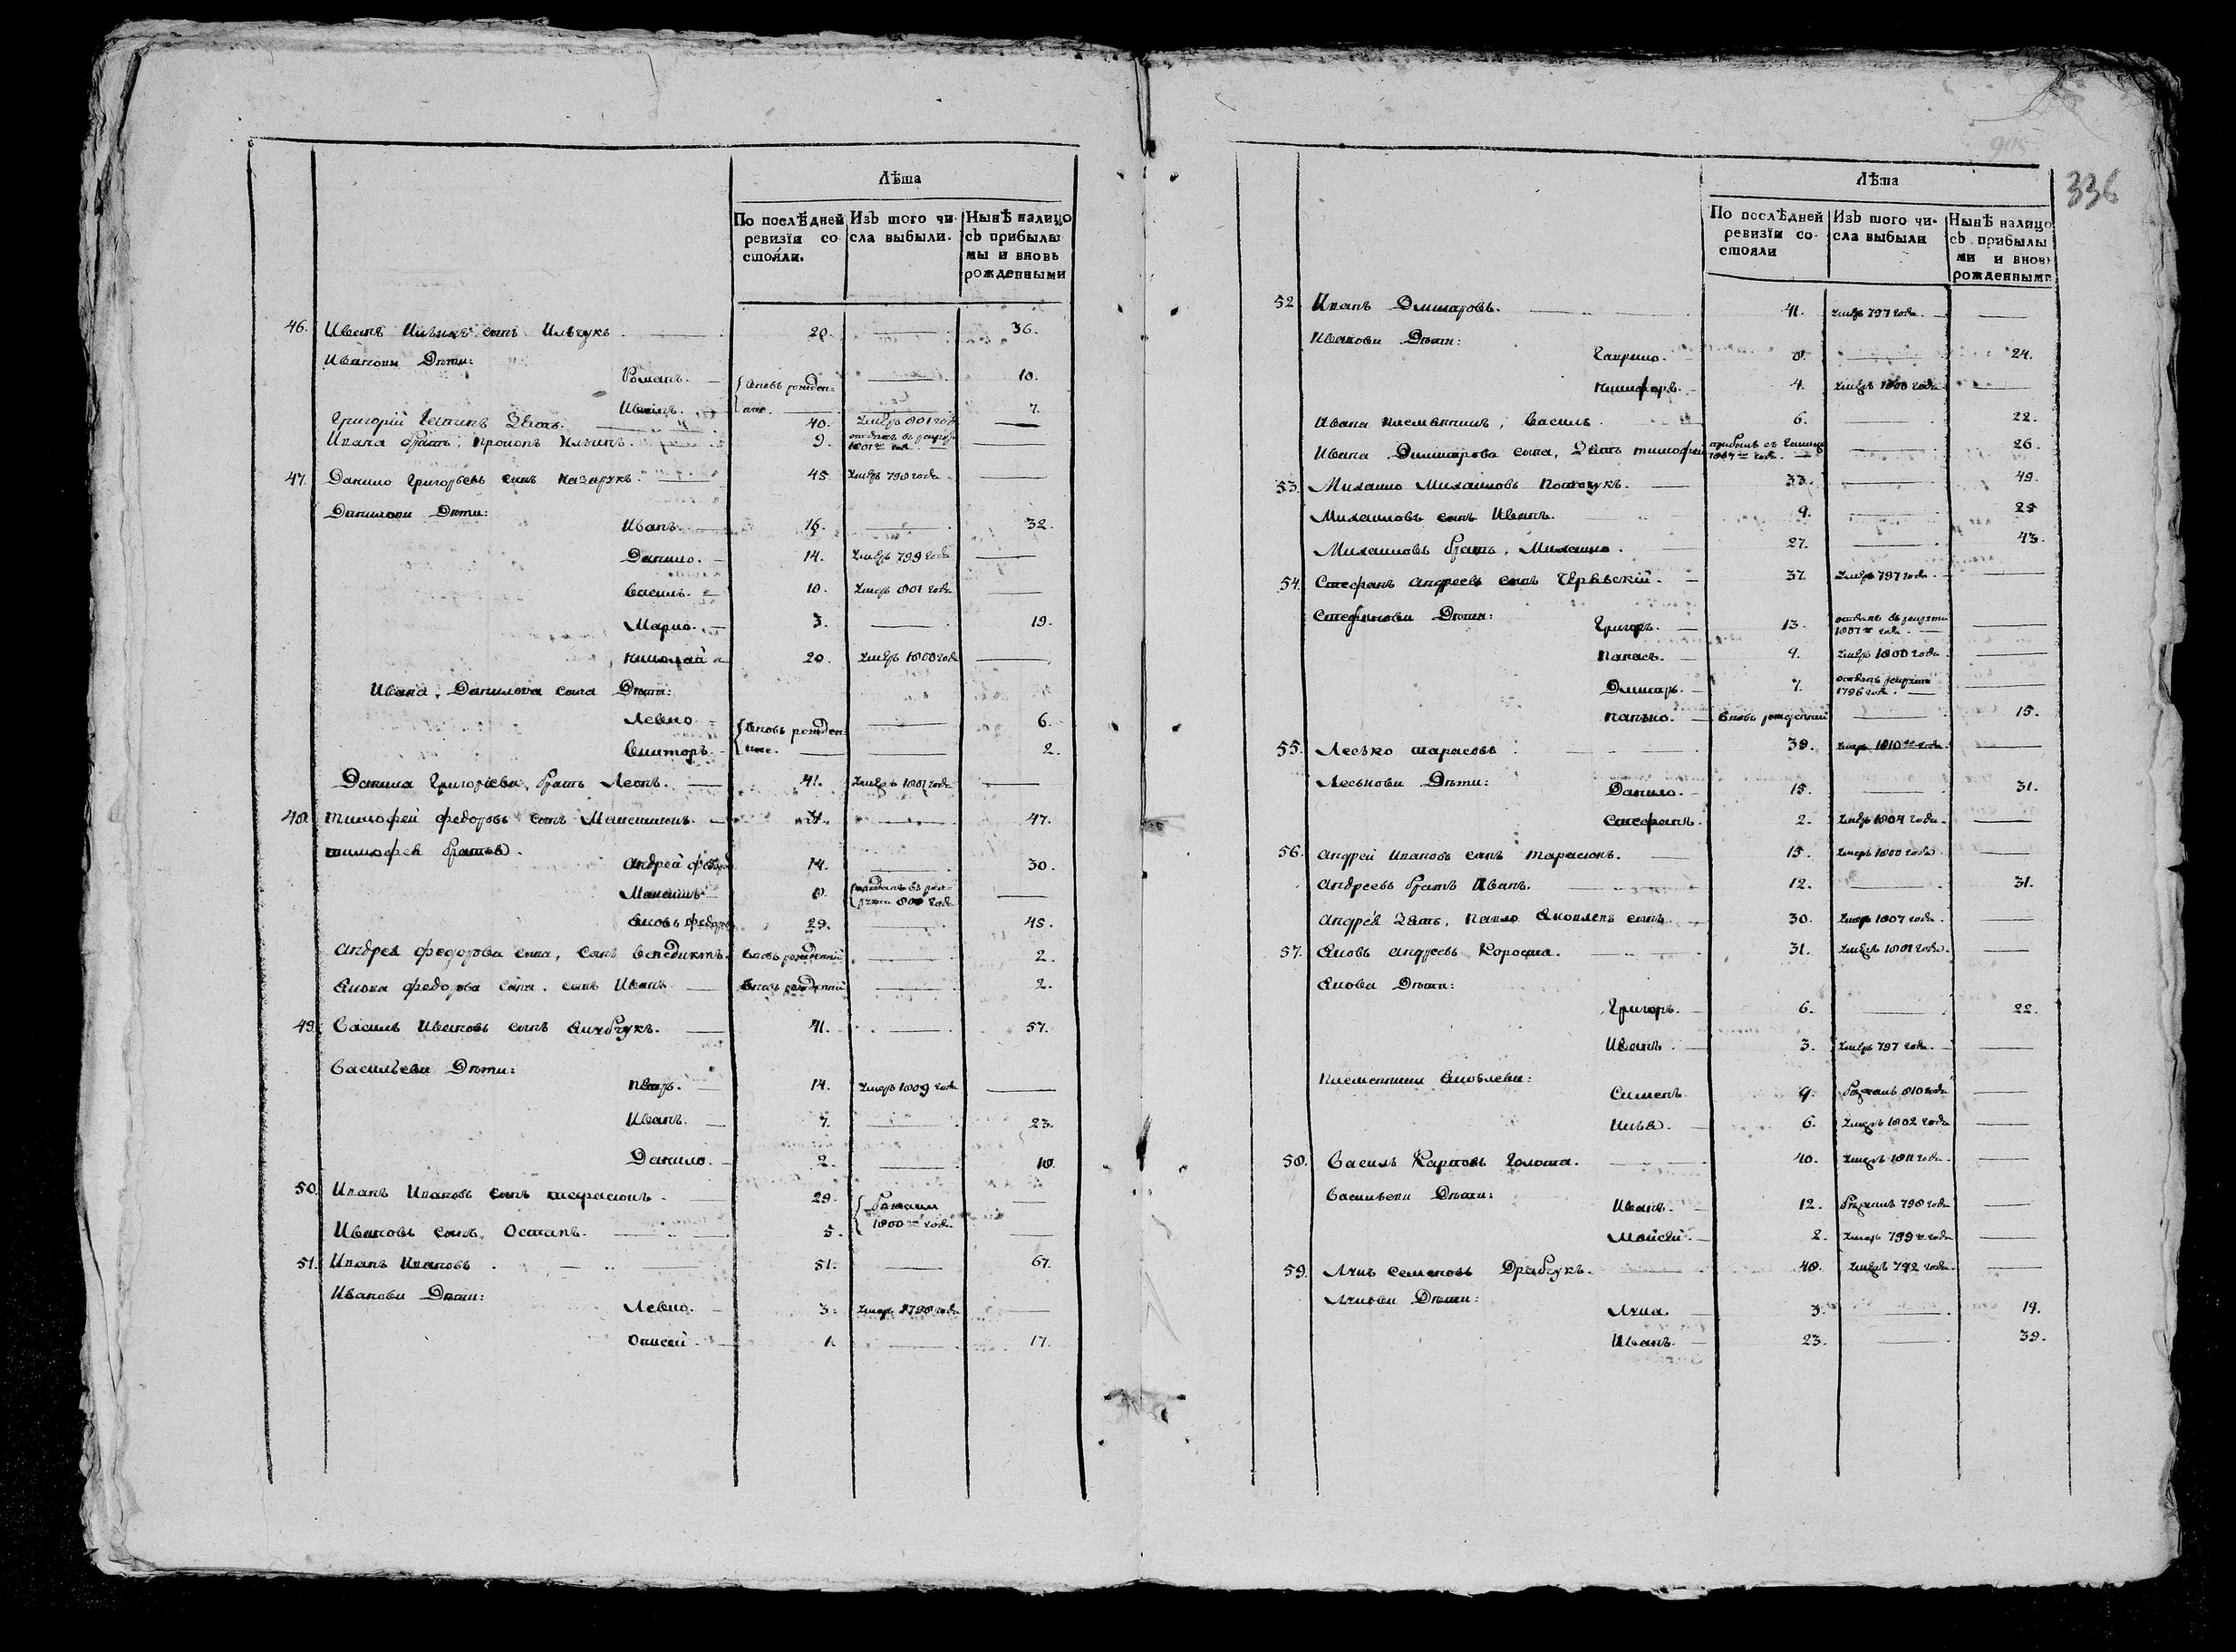 Лѣта
По послѣдней ревизїи со- стояли.
Изъ того чи- сла выбыли.
Нынѣ налицо съ прибылы мы и вновь рожденными
46. Иванъ Ильинъ сынъ Ильчукъ. 20. — 36.
Ивановы Дѣти:
Романъ. — вновь рожден- — 10.
Иванъ. — ные. — 7.
Григорій Зять. 40. умеръ 801 года —
Ивана братъ, Прокопъ Ильинъ. 9. отданъ въ рекруты 1801го года. —
47. Данило Григорьевъ сынъ Казарукъ. 45 умеръ 798 года —
Даниловы Дѣти:
Иванъ. — 16. — 32.
Данило. — 14. умеръ 799 года —
Василь. — 10. умеръ 801 года —
Марко. — 3. — 19.
Николай 20. умеръ 1800 года —
Ивана, Данилова сына Дѣти:
Левко — вновь рожден- — 6.
Викторъ. — ные. — 2.
Данила Григорьева, братъ Леонъ. — 41. умеръ 1801 года —
48. Тимофей Федоровъ сынъ — 47.
Тимофея братья.
Андрей Федор. 14. — 30.
8. отданъ въ рек- руты 800 года —
Яковъ Федоров 29. — 45.
Андрея Федорова сына, сынъ Венедиктъ. вновь рожденный — 2.
Якова Федорова сына, сынъ Иванъ — вновь рожденный — 2.
49. Василь Ивановъ сынъ — 41. — 57.
Васильевы Дѣти:
Петръ. — 14. умеръ 1809 года —
Иванъ. — 7. — 23.
Данило. — 2. — 18.
50. Иванъ Ивановъ сынъ Тарасюкъ. — 29. бежали —
Ивановъ сынъ, Остапъ. — 5. 1800го года. —
51. Иванъ Ивановъ. — 51. — 67.
Ивановы Дѣти:
Левко. — 3. умеръ 1798 года —
Олисей — 1. — 17.
336
Лѣта
По послѣдней ревизїи со- стояли
Изъ того чи- сла выбыли
Нынѣ налицо съ прибылы ми и вновь рожденными
52 Иванъ Дмитровъ. — 41. умеръ 797 года. —
Ивановы Дѣти:
Гаврило. 8. — 24.
Никифоръ. — 4. умеръ 1800 года —
Ивана племянникъ, Василь 6. — 22.
Ивана Димитрова сына, Зять Тимофей прибылъ съ 1807го года. — 26.
53. Михайло Михайловъ — 33. — 49.
Михайловъ сынъ Иванъ. 9. — 25
Михайловъ братъ, Михайло. — 27. — 43.
54. Стефанъ Андреевъ сынъ — 37. умеръ 797 года. —
Стефановы Дѣти:
Григоръ. — 13. отданъ въ рекруты 1807го года. —
Панасъ. — 9. умеръ 1800 года —
Дмитръ. — 7. отданъ рекруты 1796 года. —
Панько. — вновь рожденный — 15.
55. Лесько Тарасовъ — 39. умеръ 1810го года. —
Леськовы Дѣти:
Данило. — 15. — 31.
Стефанъ. — 2. умеръ 1804 года. —
56. Андрей Ивановъ сынъ Тарасюкъ. — 15. умеръ 1800 года —
Андреевъ братъ Иванъ. 12. — 31.
Андрея Зять, Павло Яковлевъ сынъ. — 30. умеръ 1807 года. —
57. Яковъ Андреевъ Короста. — 31. умеръ 1801 года. —
Якова Дѣти:
Григоръ. — 6. — 22.
Иванъ. — 3. умеръ 797 года. —
Племянники Яковлевы:
Сименъ 9. бежалъ 810 года —
Илья. — 6. умеръ 1802 года —
58. Василь Карповъ Голота. — 40. умеръ 1811 года. —
Васильевы Дѣти:
Иванъ. — 12. бежалъ 798 года —
Мойсей. — 2. умеръ 799го года —
59. Семеновъ — 48. умеръ 792 года. —
Дѣти:
3. — 19.
Иванъ. — 23. — 39.